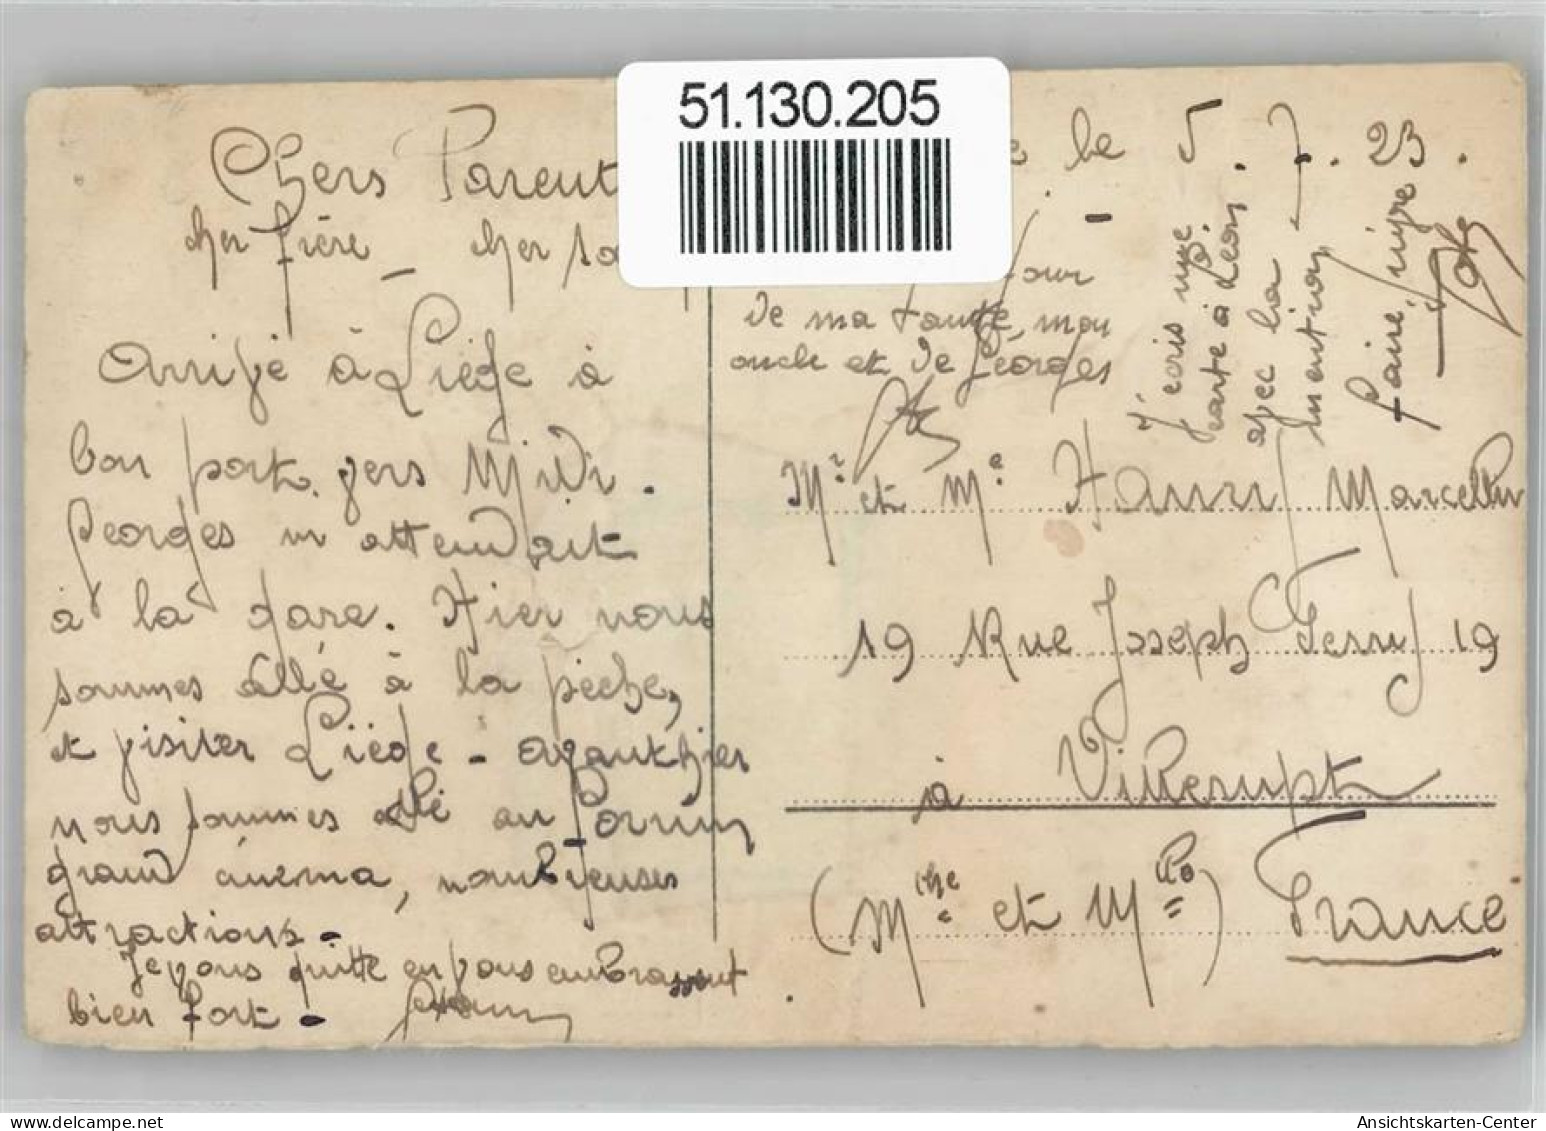 51.130.205
Chers Parent
cher frère - cher so
Arrivé à Liége à
bon port vers Midi.
Georges m attendait
à la gare. Hier nous
sommes allé à la pêche,
et visiter Liége - avant hier
nous sommes allé au Forum
grand cinema, nombreuses
attractions -
Je vous quitte en vous embrassant
bien fort -
le 5.7.23.
jour
de ma tante, mon
oncle et de Georges
J'ecris une
carte à Leon
avec la
mention
faire suivre
Mr. et Me Hanry Marcellin
19 Rue Joseph Ferry 19
à Villerupt
(Mthe et Mlle)
France
Ansichtskarten-Center